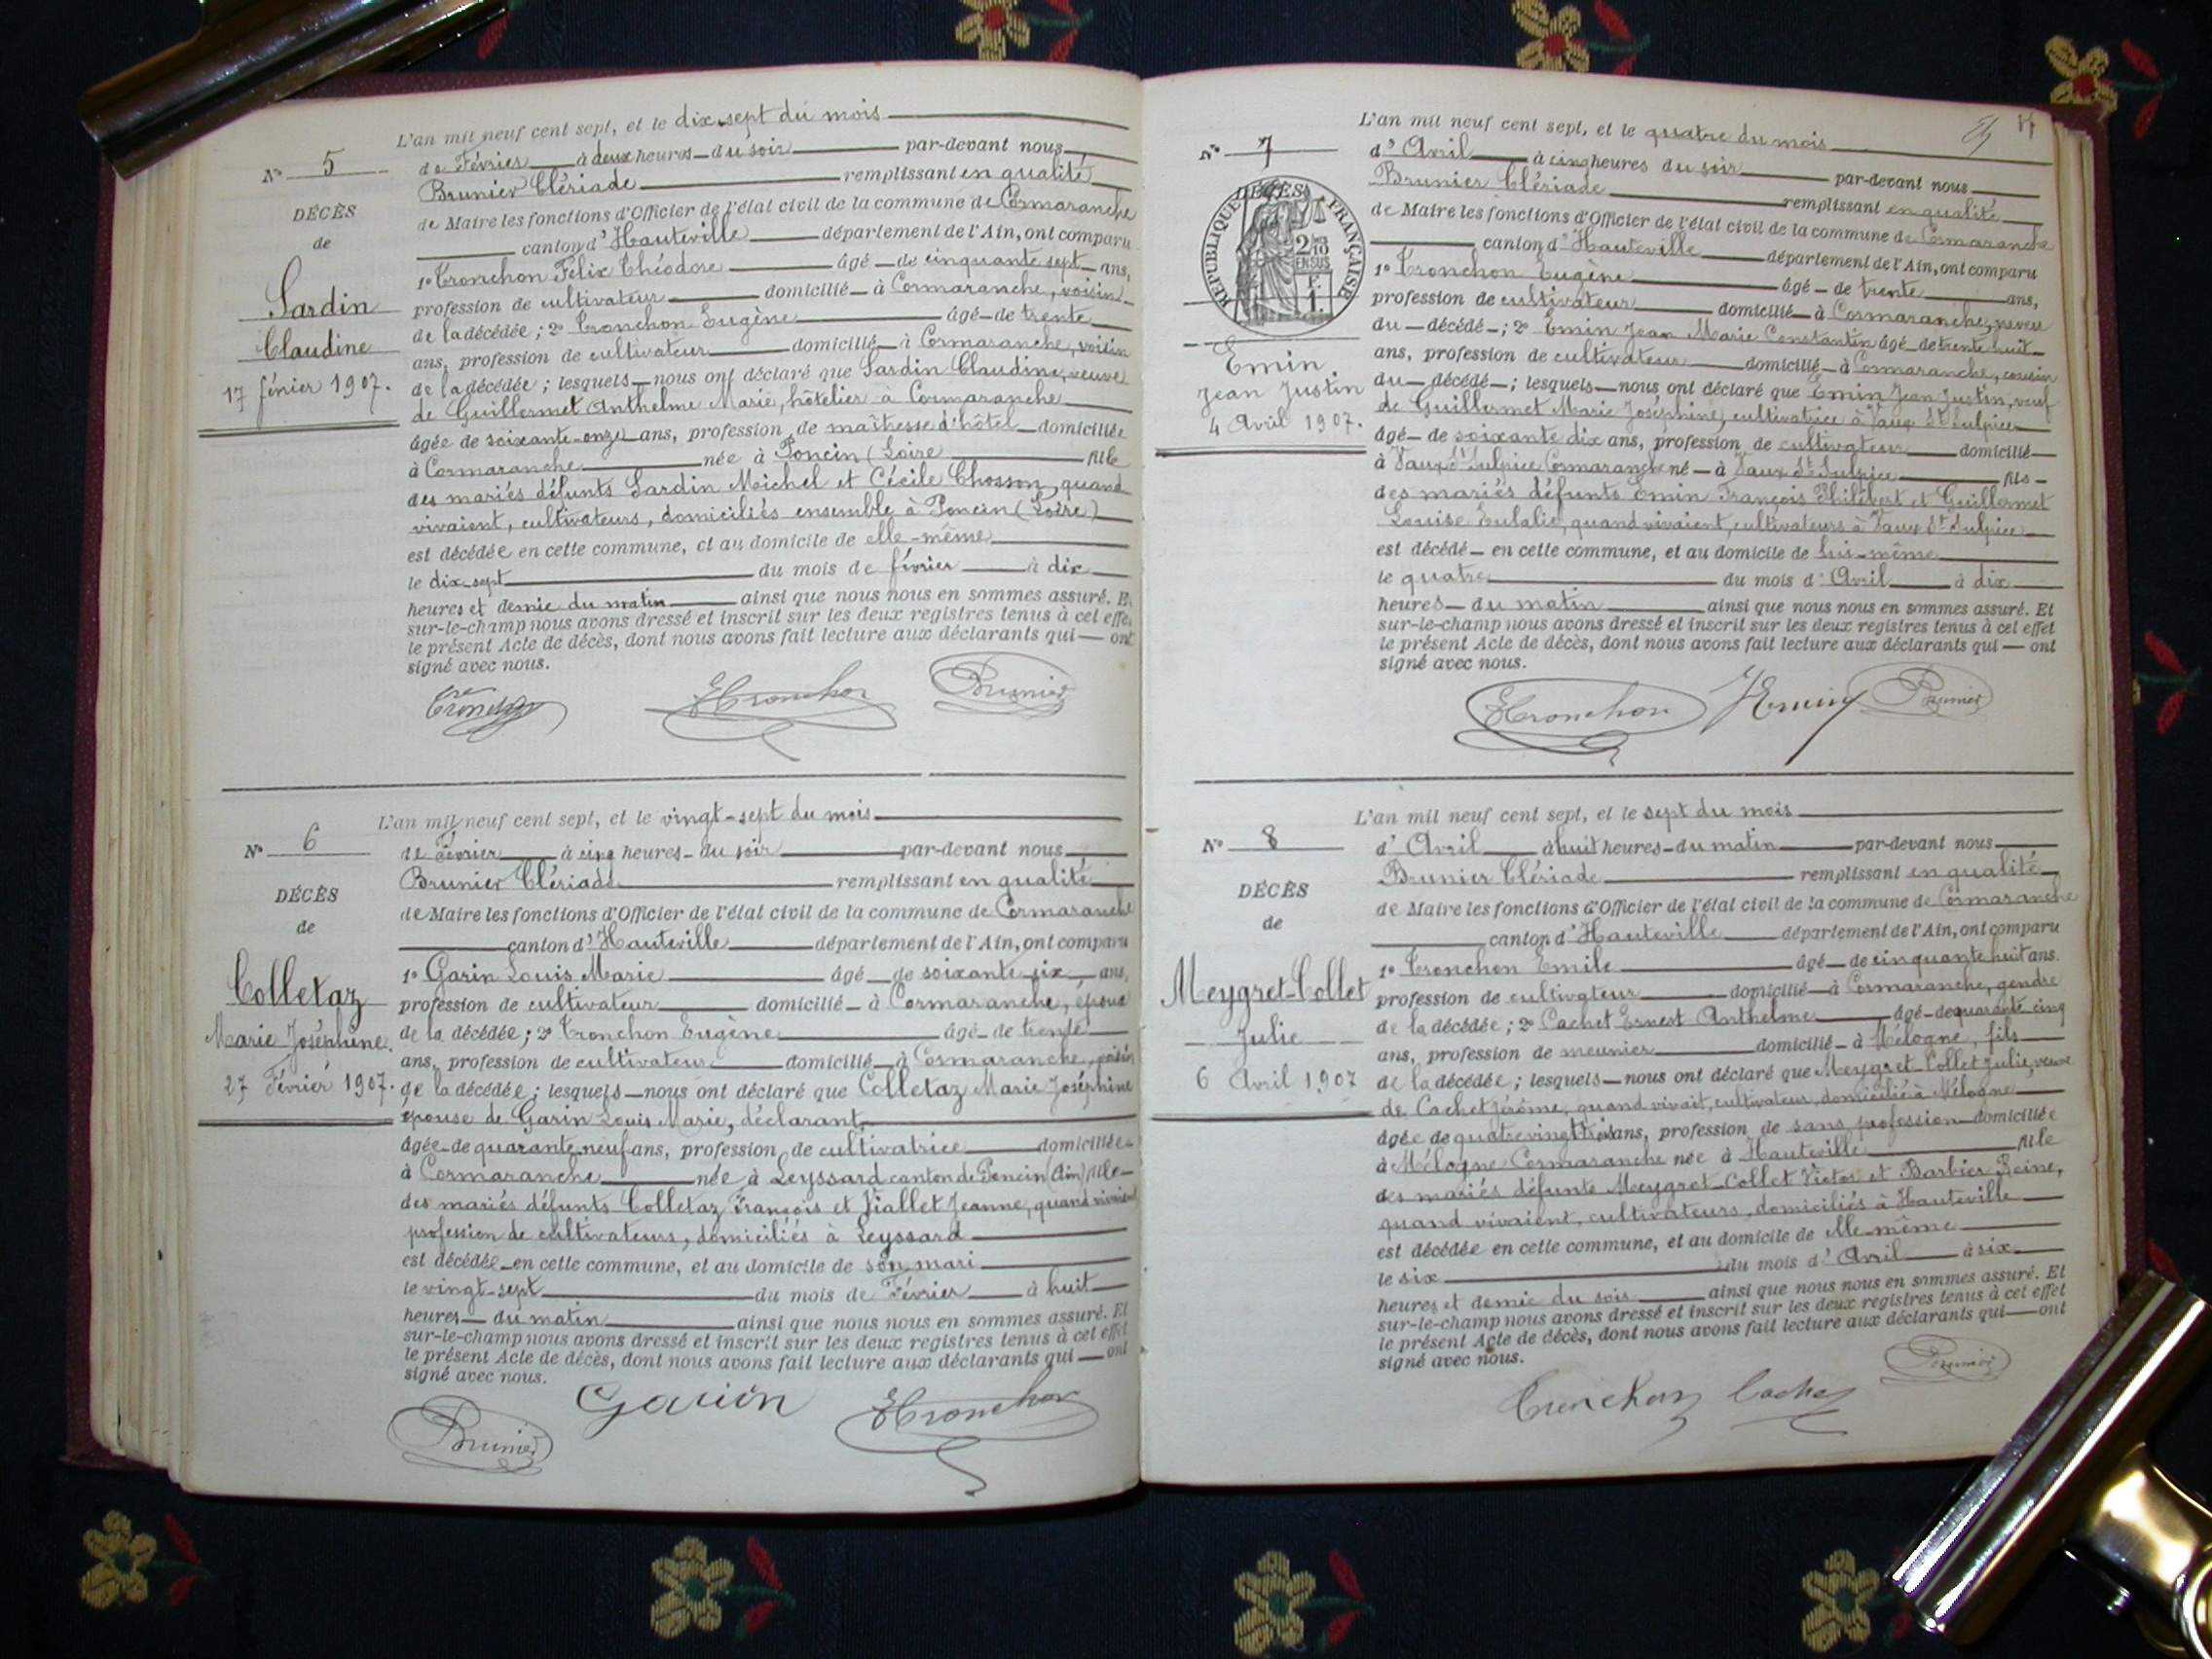 L'an mil neuf cent sept, et le dix-sept du mois
N° 5
de Février à deux heures du soir par-devant nous
Brunier Clériade remplissant en qualité
DÉCÈS
de Maire les fonctions d'Officier de l'état civil de la commune de Cormaranche
de
canton d'Hauteville département de l'Ain, ont comparu
1° Tronchon Félix Théodore âgé de cinquante sept ans,
Sardin
profession de cultivateur domicilié à Cormaranche, voisin
de la décédée ; 2° Tronchon Eugène âgé de trente
Claudine
ans, profession de cultivateur domicilié à Cormaranche, voisin
17 février 1907.
de la décédée ; lesquels nous ont déclaré que Sardin Claudine, veuve
de Guillermet Anthelme Marie, hôtelier à Cormaranche
âgée de soixante-onze ans, profession de maîtresse d'hôtel domiciliée
à Cormaranche née à Poncin (Loire fille
des mariés défunts Sardin Michel et Cécile Chosson, quand
vivaient, cultivateurs, domiciliés ensemble à Poncin (Loire)
est décédée en cette commune, et au domicile de elle-même
le dix-sept du mois de février à dix
heures et demie du matin ainsi que nous nous en sommes assuré. Et
sur-le-champ nous avons dressé et inscrit sur les deux registres tenus à cet effet
le présent Acte de décès, dont nous avons fait lecture aux déclarants qui ont
signé avec nous.
ETronchon Brunier
L'an mil neuf cent sept, et le vingt-sept du mois
N° 6
de Février à cinq heures du soir par-devant nous
Brunier Clériade remplissant en qualité
DÉCÈS
de Maire les fonctions d'Officier de l'état civil de la commune de Cormaranche
de
canton d'Hauteville département de l'Ain, ont comparu
1° Garin Louis Marie âgé de soixante six ans,
Colletaz
profession de cultivateur domicilié à Cormaranche, époux
Marie Joséphine.
de la décédée ; 2° Tronchon Eugène âgé de trente
ans, profession de cultivateur domicilié à Cormaranche, voisin
27 Février 1907.
de la décédée ; lesquels nous ont déclaré que Colletaz Marie Joséphine
épouse de Garin Louis Marie, déclarant
âgée de quarante-neuf ans, profession de cultivatrice domiciliée
à Cormaranche née à Leyssard canton de Poncin (Ain) fille
des mariés défunts Colletaz François et Viallet Jeanne, quand vivaient
profession de cultivateurs, domiciliés à Leyssard
est décédée en cette commune, et au domicile de son mari
le vingt-sept du mois de Février à huit
heures du matin ainsi que nous nous en sommes assuré. Et
sur-le-champ nous avons dressé et inscrit sur les deux registres tenus à cet effet
le présent Acte de décès, dont nous avons fait lecture aux déclarants qui ont
signé avec nous.
Brunier Garin ETronchon
L'an mil neuf cent sept, et le quatre du mois
N° 7
d'Avril à cinq heures du soir par-devant nous
Brunier Clériade remplissant en qualité
DÉCÈS
RÉPUBLIQUE FRANÇAISE
de Maire les fonctions d'Officier de l'état civil de la commune de Cormaranche
2/10 EN SUS
canton d'Hauteville département de l'Ain, ont comparu
1° Tronchon Eugène âgé de trente ans,
profession de cultivateur domicilié à Cormaranche, neveu
du décédé ; 2° Emin Jean Marie Constantin âgé de trente huit
Emin
ans, profession de cultivateur domicilié à Cormaranche, cousin
Jean Justin
du décédé ; lesquels nous ont déclaré que Emin Jean Justin, veuf
de Guillermet Marie Joséphine, cultivatrice à Vaux St Sulpice
4 Avril 1907.
âgé de soixante dix ans, profession de cultivateur domicilié
à Vaux St Sulpice Cormaranche né à Vaux St Sulpice fils
des mariés défunts Emin François Philibert et Guillermet
Louise Eulalie, quand vivaient, cultivateurs à Vaux St Sulpice
est décédé en cette commune, et au domicile de lui-même
le quatre du mois d'Avril à dix
heures du matin ainsi que nous nous en sommes assuré. Et
sur-le-champ nous avons dressé et inscrit sur les deux registres tenus à cet effet
le présent Acte de décès, dont nous avons fait lecture aux déclarants qui ont
signé avec nous.
ETronchon Emin Brunier
L'an mil neuf cent sept, et le sept du mois
N° 8
d'Avril à huit heures du matin par-devant nous
Brunier Clériade remplissant en qualité
DÉCÈS
de Maire les fonctions d'Officier de l'état civil de la commune de Cormaranche
de
canton d'Hauteville département de l'Ain, ont comparu
1° Tronchon Emile âgé de cinquante huit ans.
Meygret-Collet
profession de cultivateur domicilié à Cormaranche, gendre
de la décédée ; 2° Cachet Ernest Anthelme âgé de quarante cinq
Julie
ans, profession de meunier domicilié à Mélogne, fils
6 Avril 1907
de la décédée ; lesquels nous ont déclaré que Meygret-Collet Julie, veuve
de Cachet Jérôme, quand vivait, cultivateur, domicilié à Mélogne
âgée de quatre vingt trois ans, profession de sans profession domiciliée
à Mélogne Cormaranche née à Hauteville fille
des mariés défunts Meygret-Collet Victor et Barbier Reine,
quand vivaient, cultivateurs, domiciliés à Hauteville
est décédée en cette commune, et au domicile de elle-même
le six du mois d'Avril à six
heures et demie du soir ainsi que nous nous en sommes assuré. Et
sur-le-champ nous avons dressé et inscrit sur les deux registres tenus à cet effet
le présent Acte de décès, dont nous avons fait lecture aux déclarants qui ont
signé avec nous.
Tronchon Cachet Brunier